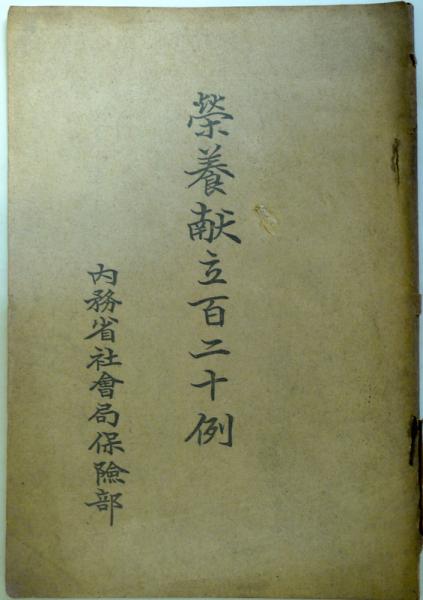 榮養献立百二十例
内務省社會局保險部